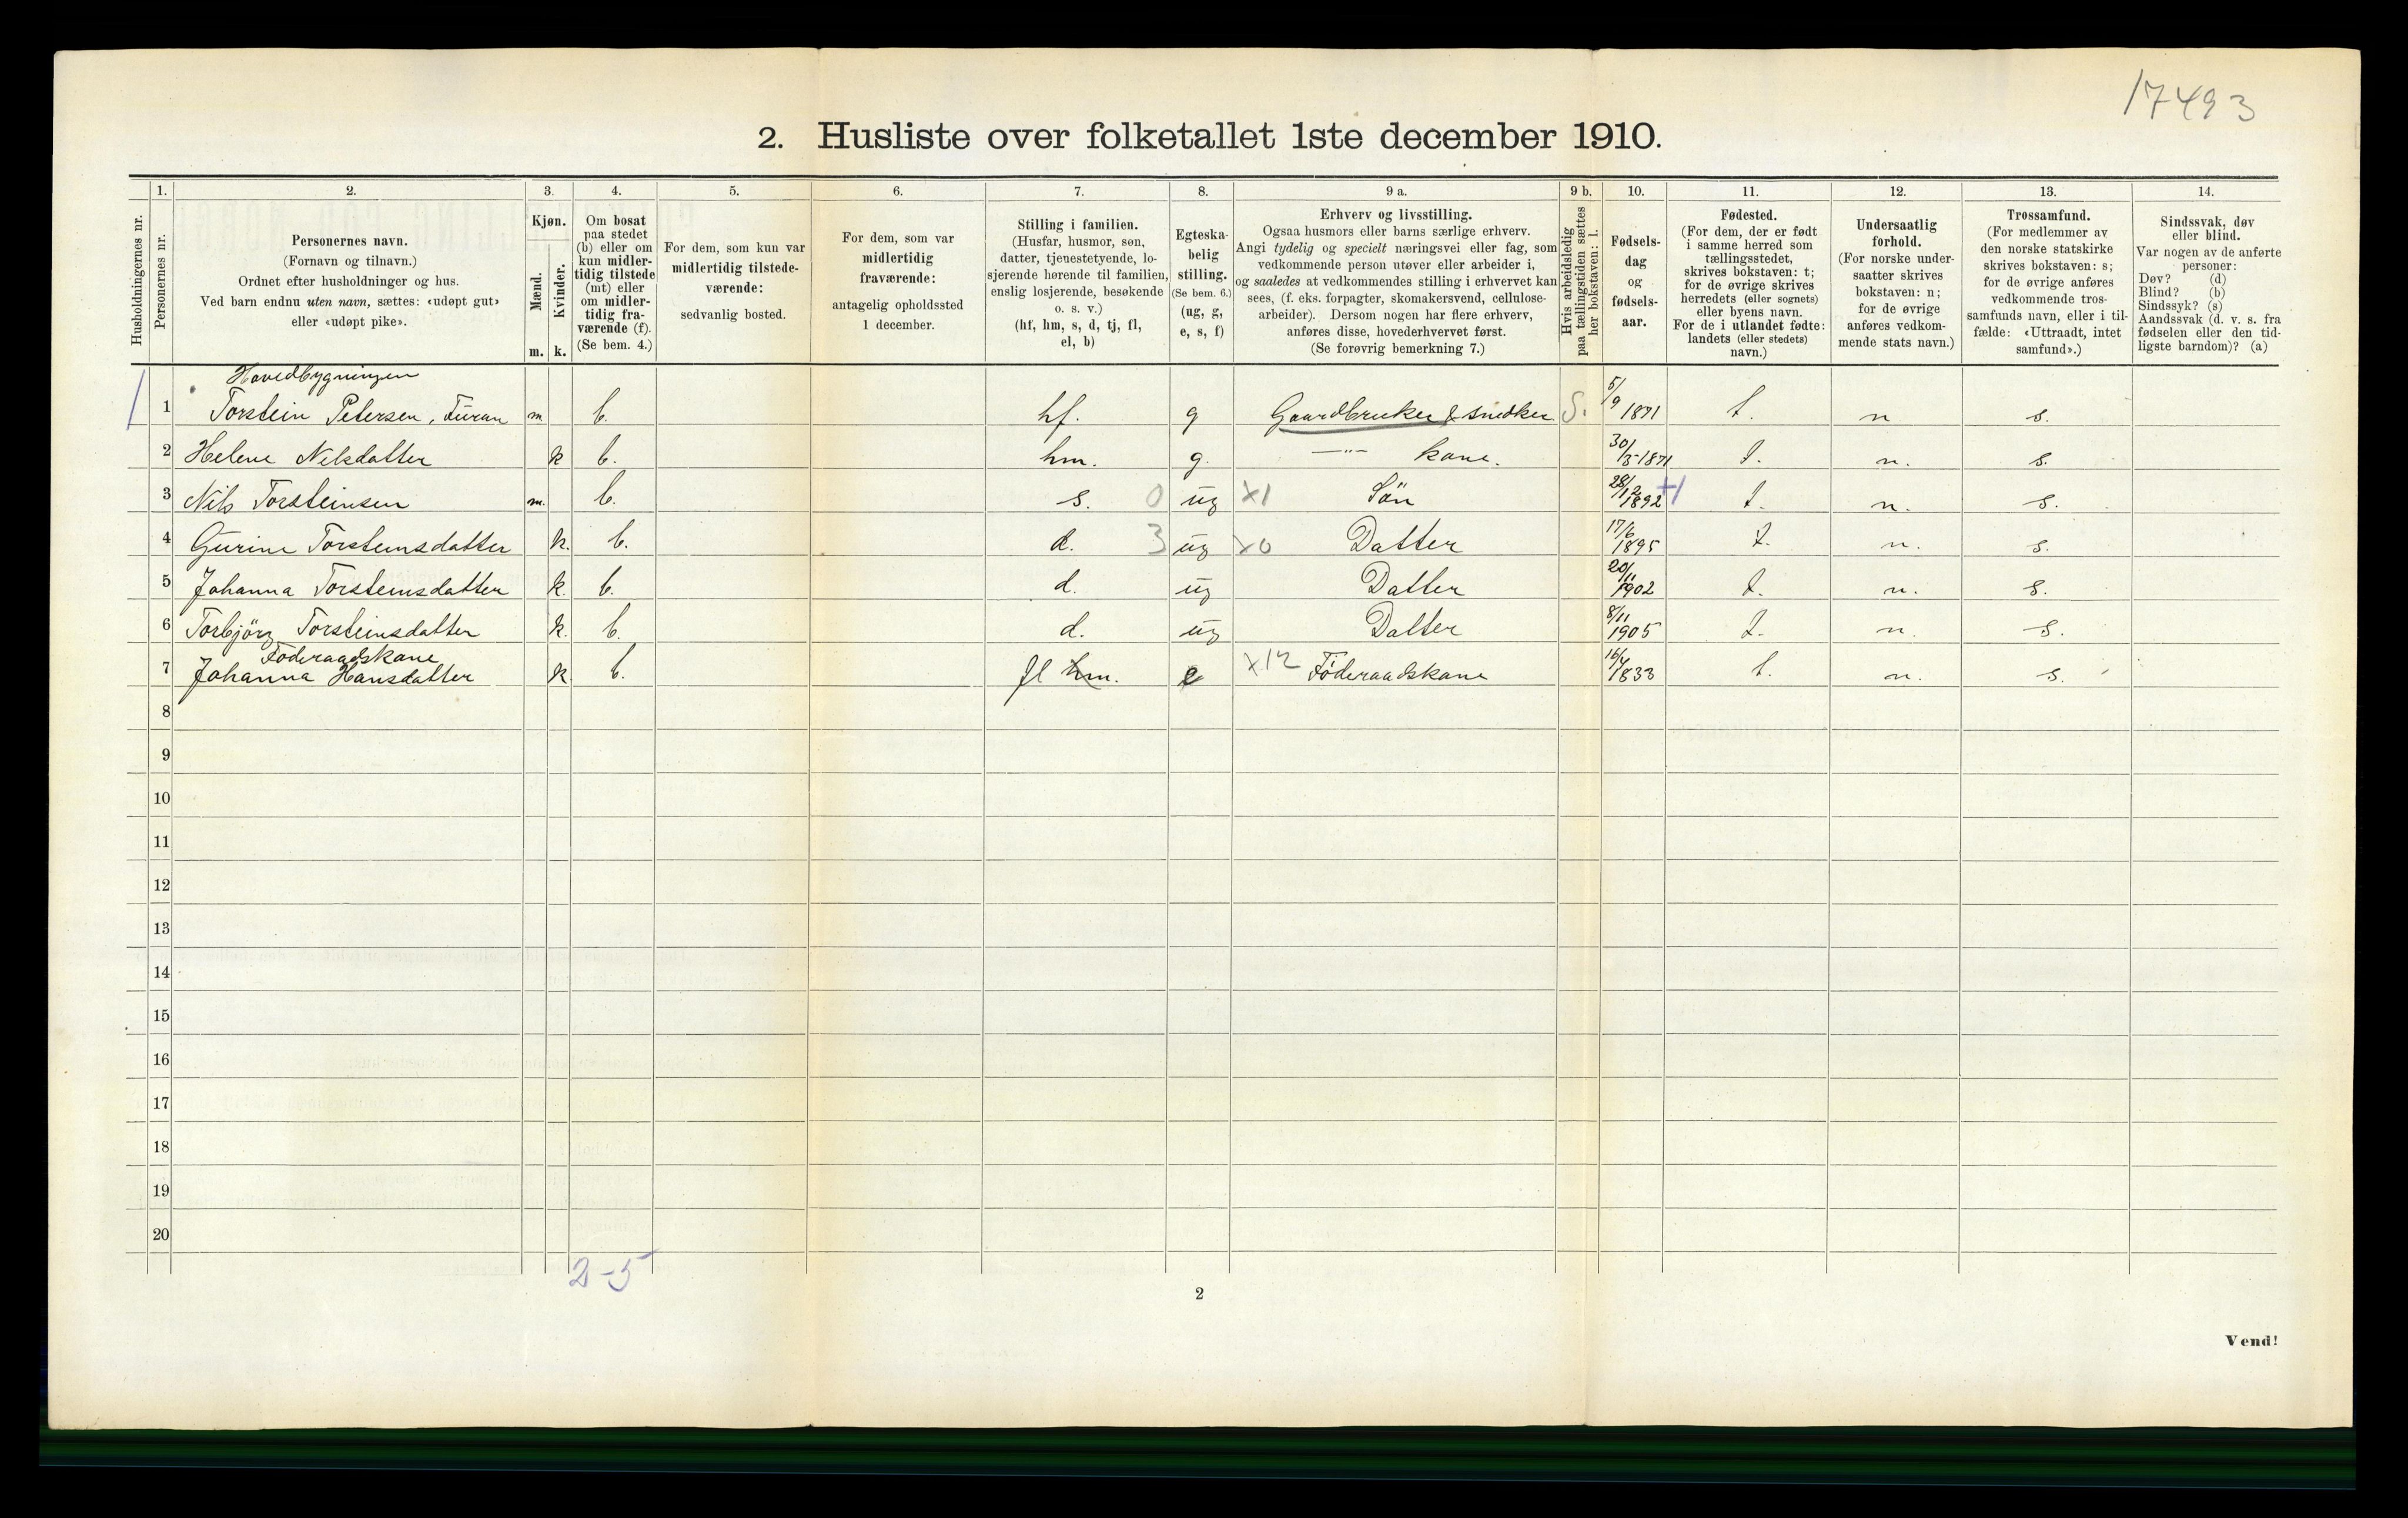 17493
2. Husliste over folketallet 1ste december 1910.
1. 2. 3. 4. 5. 6. 7. 8. 9 a. 9 b. 10. 11. 12. 13. 14.
Husholdningernes nr.
Personernes nr.
Personernes navn.
(Fornavn og tilnavn.)
Ordnet efter husholdninger og hus.
Ved barn endnu uten navn, sættes: «udøpt gut»
eller «udøpt pike».
Kjøn.
Mænd.
Kvinder.
m. k.
Om bosat
paa stedet
(b) eller om
kun midler-
tidig tilstede
(mt) eller
om midler-
tidig fra-
værende (f).
(Se bem. 4.)
For dem, som kun var
midlertidig tilstede-
værende:
sedvanlig bosted.
For dem, som var
midlertidig
fraværende:
antagelig opholdssted
1 december.
Stilling i familien.
(Husfar, husmor, søn,
datter, tjenestetyende, lo-
sjerende hørende til familien,
enslig losjerende, besøkende
o. s. v.)
(hf, hm, s, d, tj, fl,
el, b)
Egteska-
belig
stilling.
(Se bem. 6.)
(ug, g,
e, s, f)
Erhverv og livsstilling.
Ogsaa husmors eller barns særlige erhverv.
Angi tydelig og specielt næringsvei eller fag, som
vedkommende person utøver eller arbeider i,
og saaledes at vedkommendes stilling i erhvervet kan
sees, (f. eks. forpagter, skomakersvend, cellulose-
arbeider). Dersom nogen har flere erhverv,
anføres disse, hovederhvervet først.
(Se forøvrig bemerkning 7.)
Hvis arbeidsledig
paa tællingstiden sættes
her bokstaven: l.
Fødsels-
dag
og
fødsels-
aar.
Fødested.
(For dem, der er født
i samme herred som
tællingsstedet,
skrives bokstaven: t;
for de øvrige skrives
herredets (eller sognets)
eller byens navn.
For de i utlandet fødte:
landets (eller stedets)
navn.)
Undersaatlig
forhold.
(For norske under-
saatter skrives
bokstaven: n;
for de øvrige
anføres vedkom-
mende stats navn.)
Trossamfund.
(For medlemmer av
den norske statskirke
skrives bokstaven: s;
for de øvrige anføres
vedkommende tros-
samfunds navn, eller i til-
fælde: «Uttraadt, intet
samfund».)
Sindssvak, døv
eller blind.
Var nogen av de anførte
personer:
Døv? (d)
Blind? (b)
Sindssyk? (s)
Aandssvak (d. v. s. fra
fødselen eller den tid-
ligste barndom)? (a)
Hovedbygningen
1 Torstein Petersen, Furan m b. hf. g Gaardbruker & snedker S. 5/9 1871 t. n s.
2 Helene Nilsdatter k b. hm. g. —"— kone. 30/5 1871 t. n. s.
3 Nils Torsteinsen m. b. s. 0 ug x1 Søn 28/12 1892 +1 t. n. s.
4 Gurine Torsteinsdatter k. b. d. 3 ug x0 Datter 17/6 1895 t. n. s.
5 Johanna Torsteinsdatter k. b. d. ug Datter 20/11 1902 t. n. s.
6 Torbjörg Torsteinsdatter k. b. d. ug Datter 8/11 1905 t. n. s.
Föderaadskone
7 Johanna Hansdatter k b. fl hm. e x12 Föderaadskone 16/4 1833 t. n. s.
8
9
10
11
12
13
14
15
16
17
18
19
20
2-5
2
Vend!